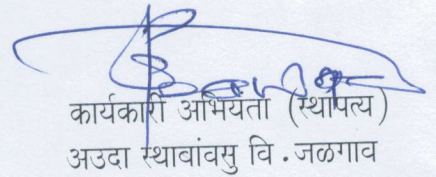 कार्यकारी अभियंता (स्थापत्य)
अउदा स्थावांवसु वि . जळगाव